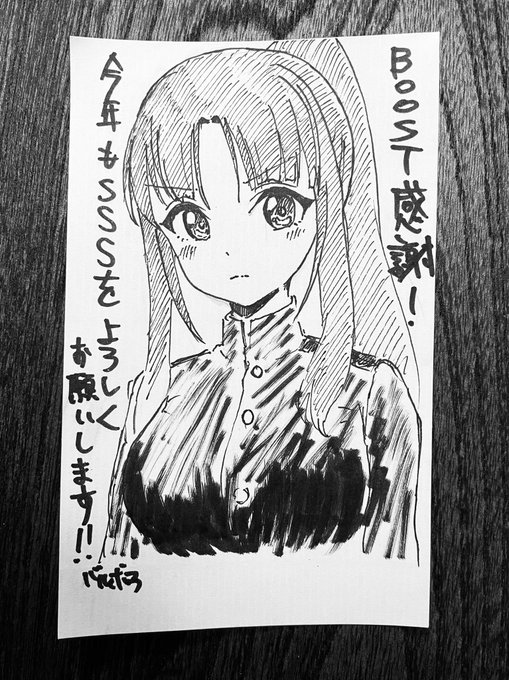 BOOST感謝！
今年もSSSをよろしく
お願いします!!